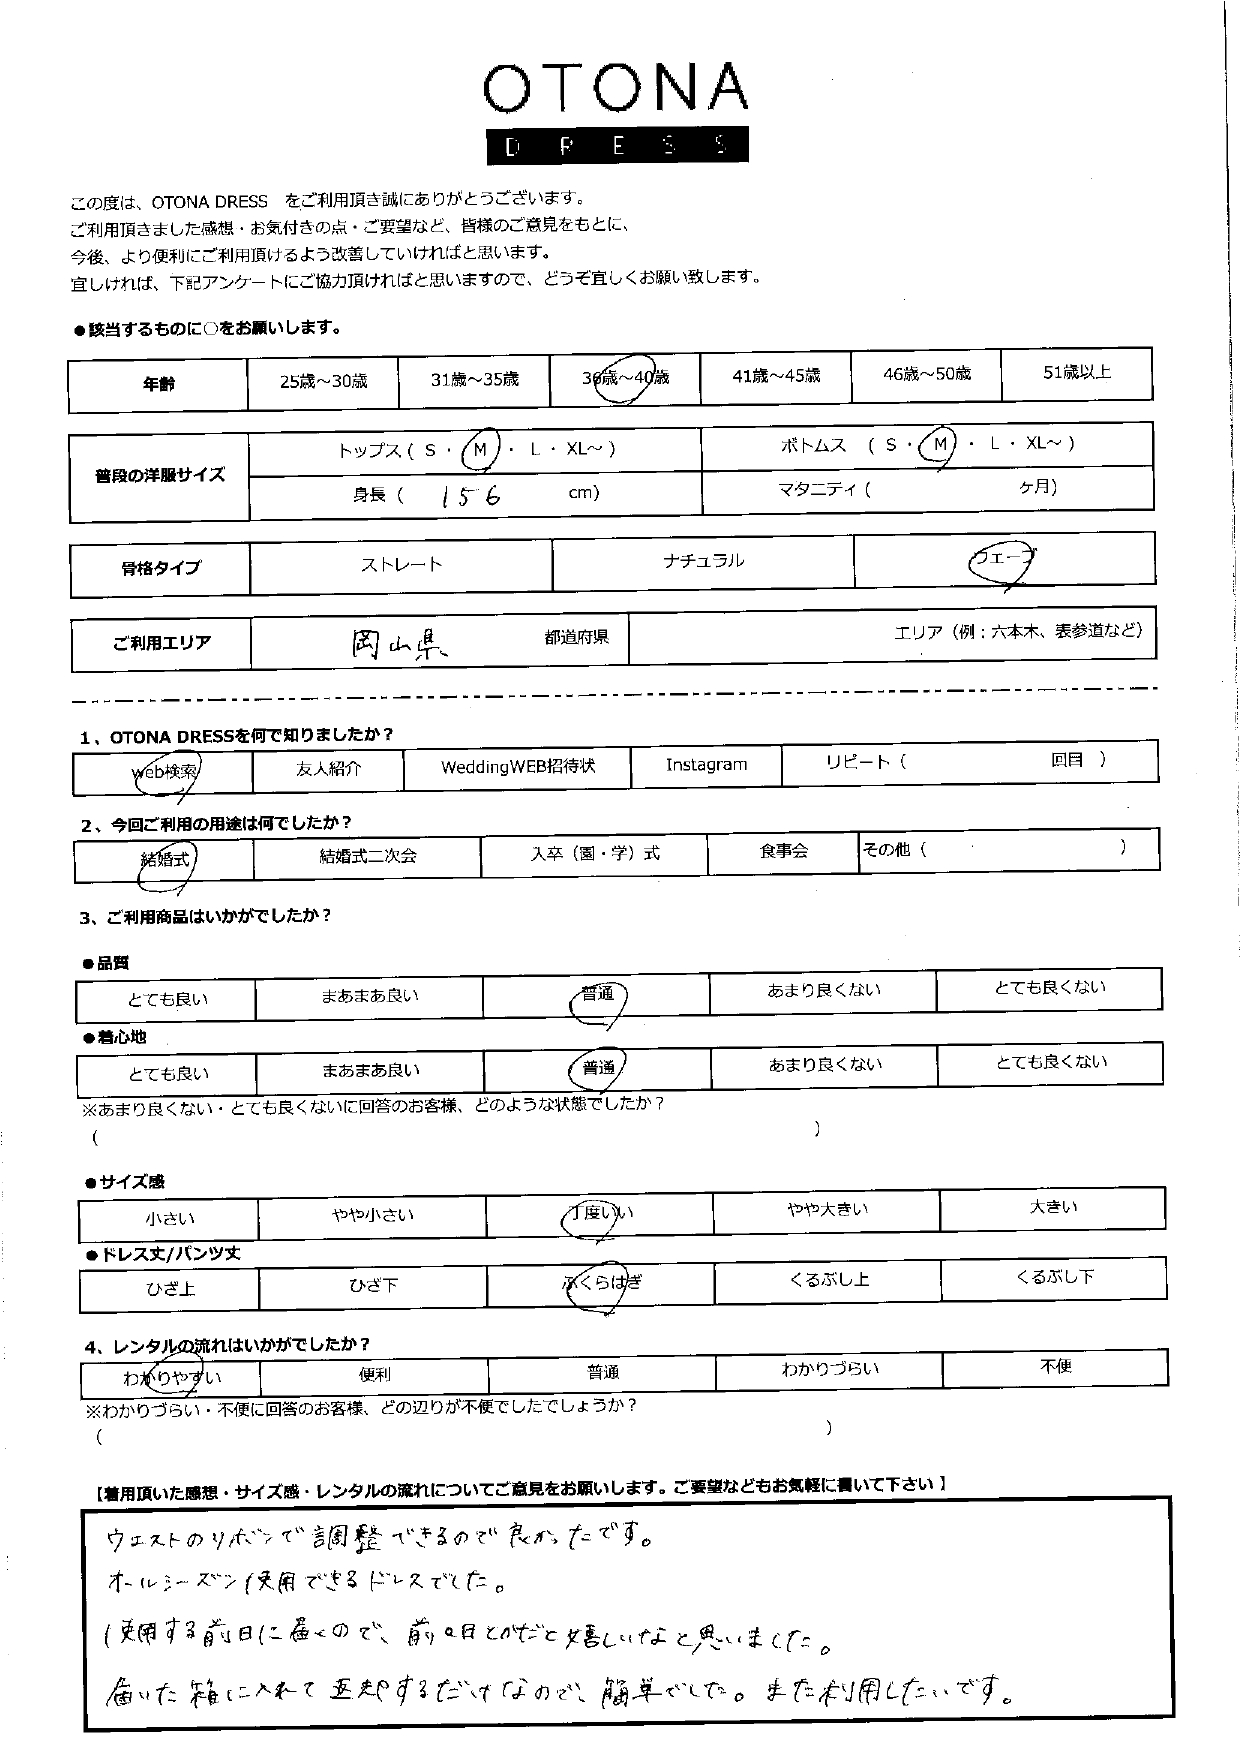 OTONA
DRESS
この度は、OTONA DRESS　をご利用頂き誠にありがとうございます。
ご利用頂きました感想・お気付きの点・ご要望など、皆様のご意見をもとに、
今後、より便利にご利用頂けるよう改善していければと思います。
宜しければ、下記アンケートにご協力頂ければと思いますので、どうぞ宜しくお願い致します。
●該当するものに○をお願いします。
年齢 25歳～30歳 31歳～35歳 36歳～40歳 41歳～45歳 46歳～50歳 51歳以上
普段の洋服サイズ トップス ( S ・ M ・ L ・ XL～ ) ボトムス ( S ・ M ・ L ・ XL～ )
身長 ( 156 cm) マタニティ ( ケ月)
骨格タイプ ストレート ナチュラル ウェーブ
ご利用エリア 岡山県 都道府県 エリア（例：六本木、表参道など）
1、OTONA DRESSを何で知りましたか？
web検索 友人紹介 WeddingWEB招待状 Instagram リピート ( 回目 )
2、今回ご利用の用途は何でしたか？
結婚式 結婚式二次会 入卒（園・学）式 食事会 その他 ( )
3、ご利用商品はいかがでしたか？
●品質
とても良い まあまあ良い 普通 あまり良くない とても良くない
●着心地
とても良い まあまあ良い 普通 あまり良くない とても良くない
※あまり良くない・とても良くないに回答のお客様、どのような状態でしたか？
( )
●サイズ感
小さい やや小さい 丁度いい やや大きい 大きい
●ドレス丈/パンツ丈
ひざ上 ひざ下 ふくらはぎ くるぶし上 くるぶし下
4、レンタルの流れはいかがでしたか？
わかりやすい 便利 普通 わかりづらい 不便
※わかりづらい・不便に回答のお客様、どの辺りが不便でしたでしょうか？
( )
【着用頂いた感想・サイズ感・レンタルの流れについてご意見をお願いします。ご要望などもお気軽に書いて下さい】
ウエストのリボンで調整できるので良かったです。
オールシーズン使用できるドレスでした。
使用する前日に届くので、前々日とかだと嬉しいなと思いました。
届いた箱に入れて返却するだけなので、簡単でした。また利用したいです。